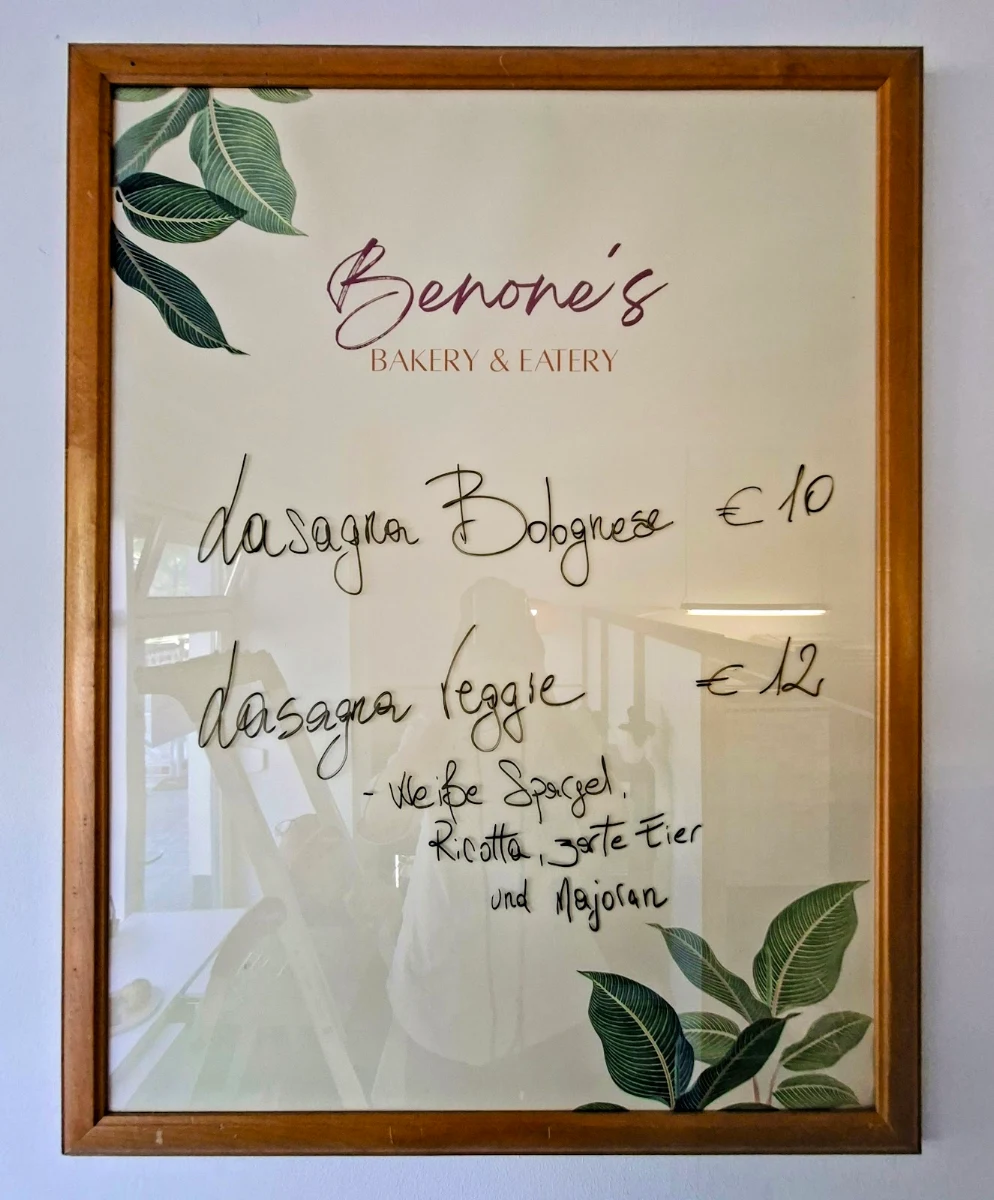 Benone's
BAKERY & EATERY
Lasagna Bolognese € 10
Lasagna Veggie € 12
- Weiße Spargel,
Ricotta, zarte Eier
und Majoran